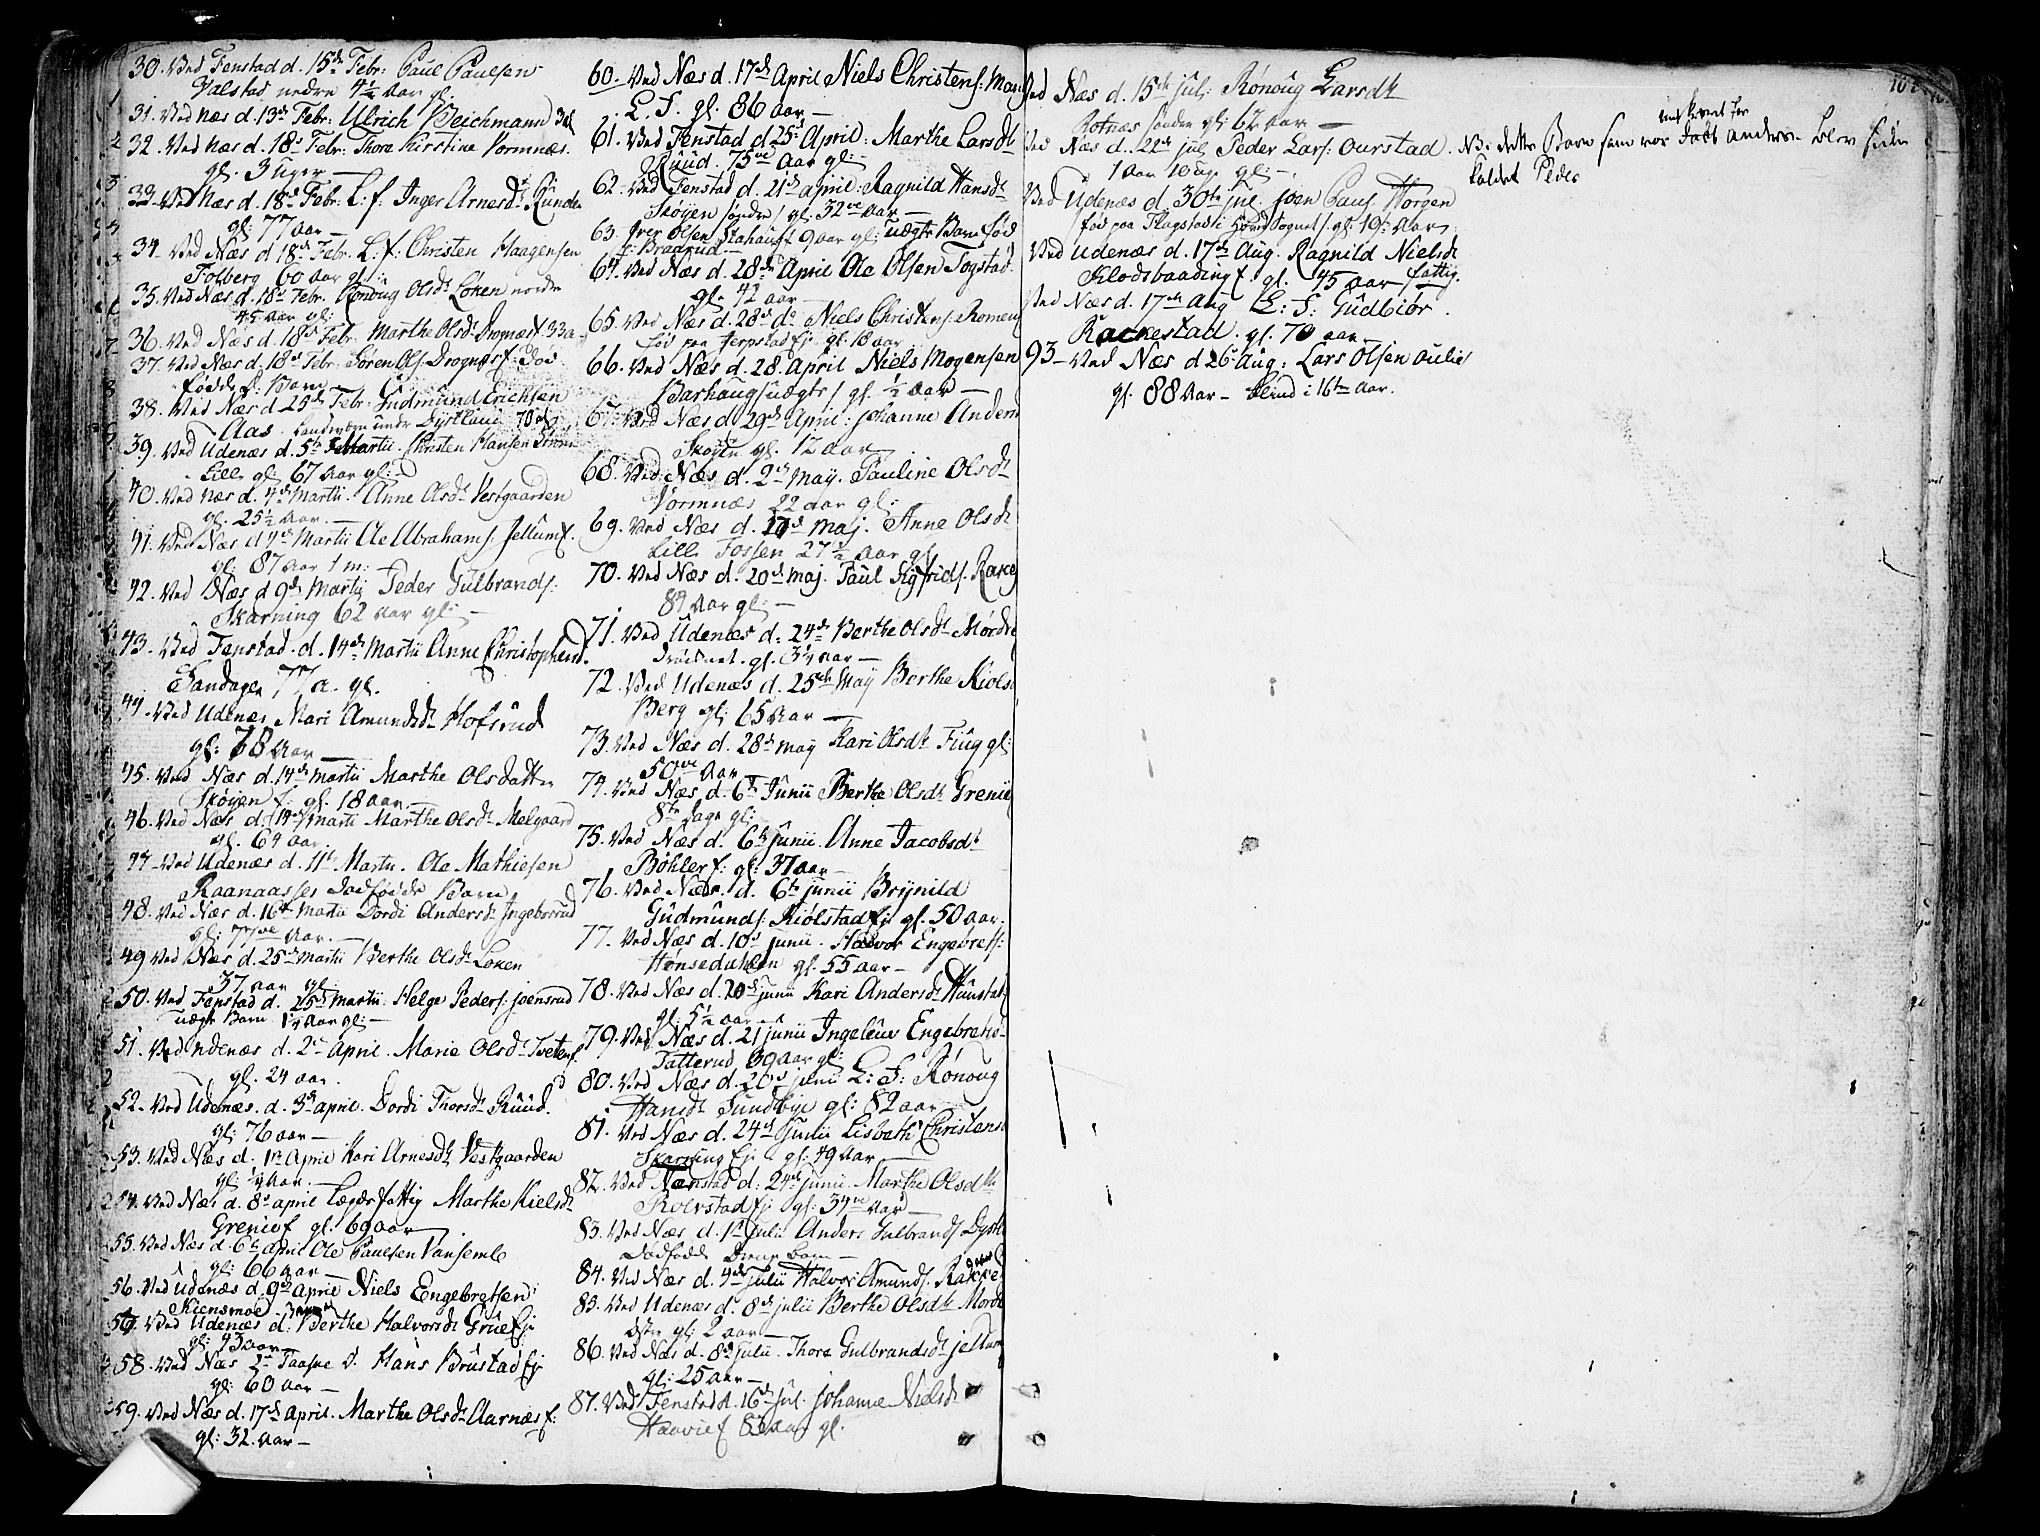 30. Ved Fenstad d. 15de Febr: Paul Paulsen
Valstad nedre 4½ Aar gl.
31. Ved Næs d. 13de Febr: Ulrich Beichmann
32. Ved Næs d. 18d Febr: Thora Kirstine Vormnæs.
gl. 3 Uger —
33. Ved Næs d. 18de Febr: L: f: Inger Arnesdt Runden
gl: 77 aar —
34. Ved Næs d 18de Febr. L: f: Christen Haagensen
Tolberg 60 aar gl:
35. Ved Næs d. 18d Febr. Rønoug Olsdt Løken nordre
45 aar gl:
36. Ved Næs d. 18de Febr. Marthe Olsdt Drognæs f. 33 a
37. Ved Næs d. 18de Febr. Søren Ols. Drognæs f: Død
fødde
38. Ved Næs d 25de Febr: Gudmund Erichsen
Aas. Landværn under Dystland 70
39. Ved Udenæs d. 5te Martii. Christen Hansen
Lille gl: 67 Aar gl:
40. Ved Næs d. 4de Martii. Anne Olsdt Vestgaarden
gl. 25½ Aar.
41. Ved Næs d 4de Martii Ole Abrahams. Jellum f.
gl: 87 aar 1 m:
42. Ved Næs d 9de Martii Peder Gulbrands:
Skarning 62 aar gl: —
43. Ved Fenstad d. 14de Martii Anne Christophersd.
Sandager 77 a. gl.
44. Ved Udenæs Mari Amundsdt Hofsrud
gl: 78 Aar —
45. Ved Næs d. 14de Martii Marthe Olsdatter
Skøyen f. gl. 18 aar. —
46. Ved Næs d. 14de Martii Marthe Olsdt Melgaard
gl. 64 aar
47. Ved Udenæs d. 11te Martii. Ole Mathiesen
Raanaasses dødfødde Barn
48. Ved Næs d. 16de Martii Dordi Andersdt Ingebersrud
gl: 77ve Aar. —
49 Ved Næs d. 25de Martii Berthe Olsdt Løken
37 aar gl:
50. Ved Fenstad d. 25de Martii. Helge Peders: Joensrud
uægte Barn 1¼ Aar gl: —
51. Ved Udenæs d. 2de April. Marie Olsdt Tveten f.
gl. 24 aar.
52. Ved Udenæs. d. 3de April. Dordi Thorsdt Ruud.
gl: 76 aar —
53. Ved Næs d. 1ste April Kari Arnesdt Vestgaarden
gl: ¼ Aar. —
54. Ved Næs d. 8de april Lægdsfattig Marthe Kielsdt
Grenie f gl. 69 aar
55. Ved Næs d. 6te april Ole Paulsen Vansemb
gl: 66 Aar
56. Ved Udenæs d. 9de April Niels Engebretsen
Kiensmoe
57. Ved Udenæs d: Berthe Halvorsdt Grue Ej:
gl: 43 aar
58. Ved Næs 2de Paaske d. Hans Brustad Ej
gl: 60 aar —
59. Ved Næs d. 17de April. Marthe Olsdt Aarnæs f:
gl: 32. Aar —
60. Ved Næs d. 17de April Niels Christens: Mau
L. f. gl. 86 aar —
61. Ved Fenstad d 25de April: Marthe Larsdt
Ruud. 75ve Aar gl:
62. Ved Fenstad d. 21de April: Ragnild Hansdt
Skøyen søndre gl: 32ve Aar —
63. Iver Olsen Stahaug f 9 aar gl: uægte Barn fød
p: Braarud. —
64. Ved Næs d. 28de April Ole Olsen Togstad
gl. 42 aar —
65. Ved Næs d. 28de do Niels Christens. Romen
fød paa Jerpstad Ej: gl. 18 aar
66. Ved Næs d. 28. April Niels Mogensen
Barhaug /uægte/ gl. ½ Aar —
67. Ved Næs d 29de April: Johanne Anders
Skøyen gl. 12 Aar
68. Ved Næs d. 2de May. Pauline Olsdt
Vormnæs 22 aar gl:
69. Ved Næs d. 17de Maj. Anne Olsdt
Lille Fossen 27½ Aar gl
70. Ved Næs d. 20de Maj. Paul Sigfrids. Rake
89 Aar gl: —
71. Ved Udenæs d: 24de Berthe Olsdt Mørdre
gl. 3¼ Aar —
72. Ved Udenæs d. 25de May Berthe Kiols
Berg gl: 65 Aar —
73. Ved Næs d. 28de May Kari Olsdt Fiug gl:
50ve Aar
74. Ved Næs d. 6te Junii Berthe Olsdt Grenie
8te Dage gl:
75. Ved Næs d. 6te Junii. Anne Jacobsdt
Bøhler f: gl: 37 aar —
76. Ved Næs. d. 6te Junii Brynild
Gudmunds: Kiølstad Ej: gl. 50 aar.
77. Ved Næs d. 10de Junii. Halvor Engebrets:
Hønsedahlen gl. 55 aar —
78. Ved Næs d. 20de Junii Kari Andersdt Hunstad
gl: 5½ aar —
79. Ved Næs d. 21 Junii Ingeleuv Engebrets
Tatterud 69 Aar gl:
80. Ved Næs d. 20de Junii L: f: Rønoug
Hansdt Sundbye gl: 82 aar
81. Ved Næs d. 24de Junii Lisbeth Christens
Skarning Ej: gl: 49 Aar —
82. Ved Fenstad d: 24de Junii. Marthe Olsdtt
Rolvstad Ej: gl: 34ve Aar —
83. Ved Næs d. 1ste Julii Anders Gulbrands Dyst
Dødfødde Drenge barn —
84. Ved Næs d. 4de Julii Halvor Amunds. Rakke
85. Ved Udenæs d. 8de Julii Berthe Olsdt Mordr
østre gl: 2 aar —
86. Ved Næs d. 8de Julii. Thore Gulbrandsdt Jellum
gl: 25 aar —
87. Ved Fenstad d. 16de Jul. Johanne Nielsdt
Haavie f 82 Aar gl.
Ved Næs d. 15de Jul: Rønoug Larsdt
Rotnæs søndre gl: 62 aar —
Ved Næs d. 22de Jul Peder Lars: Ourstad. NB: dette Barn som var Døbt Anders — blev siden
kaldet Peder
1 Aar 10 uger gl: —
Ved Udenæs d. 30te Jul. Joen Pauls. Horgen
fød paa Flagstad i Hovin Sognet gl: 19: Aar
Ved Udenæs d. 17de Aug. Ragnild Nielsdt
Klodsbaading f gl. 45 aar fattig.
Ved Næs d. 17de Aug L: f: Gudbiør.
Rackestad. gl. 70 aar
93 — Ved Næs d 26. Aug: Lars Olsen Aulie
gl. 88 Aar — blind i 16ten Aar.